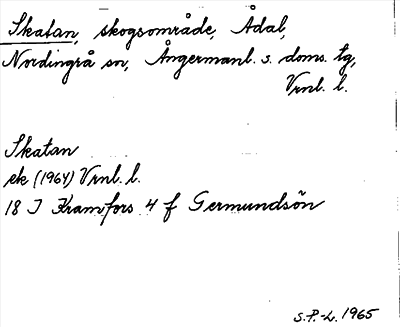 Skatan, skogsområde, Ådal,
Nordingrå sn, Ångermanl. s. doms. tg,
Vrnl. l.
Skatan
ek (1964) Vrnl. l.
18 I Kramfors 4 f Germundsön
S.P.-L. 1965